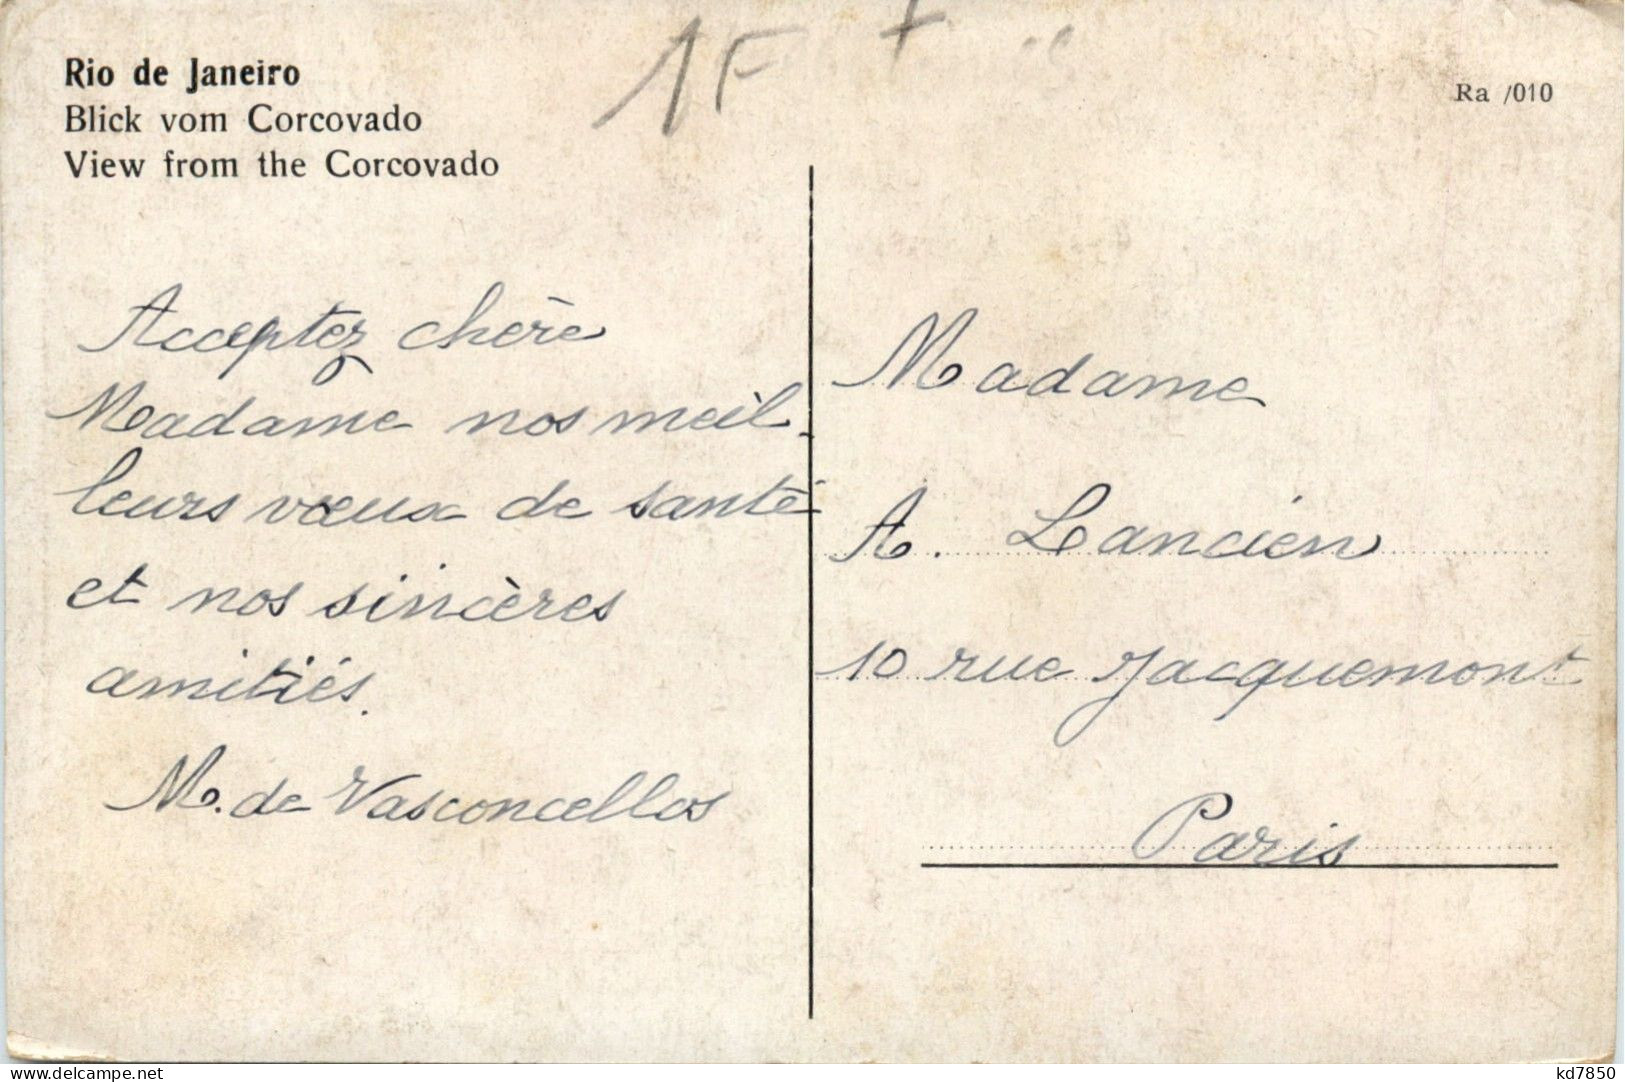 1F
Rio de Janeiro
Blick vom Corcovado
View from the Corcovado
Ra /010
Acceptez chère
Madame nos meil-
leurs vœux de santé
et nos sincères
amitiés.
M. de Vasconcellos
Madame
A. Lancien
10 rue Jacquemont
Paris
delcampe.net
kd7850